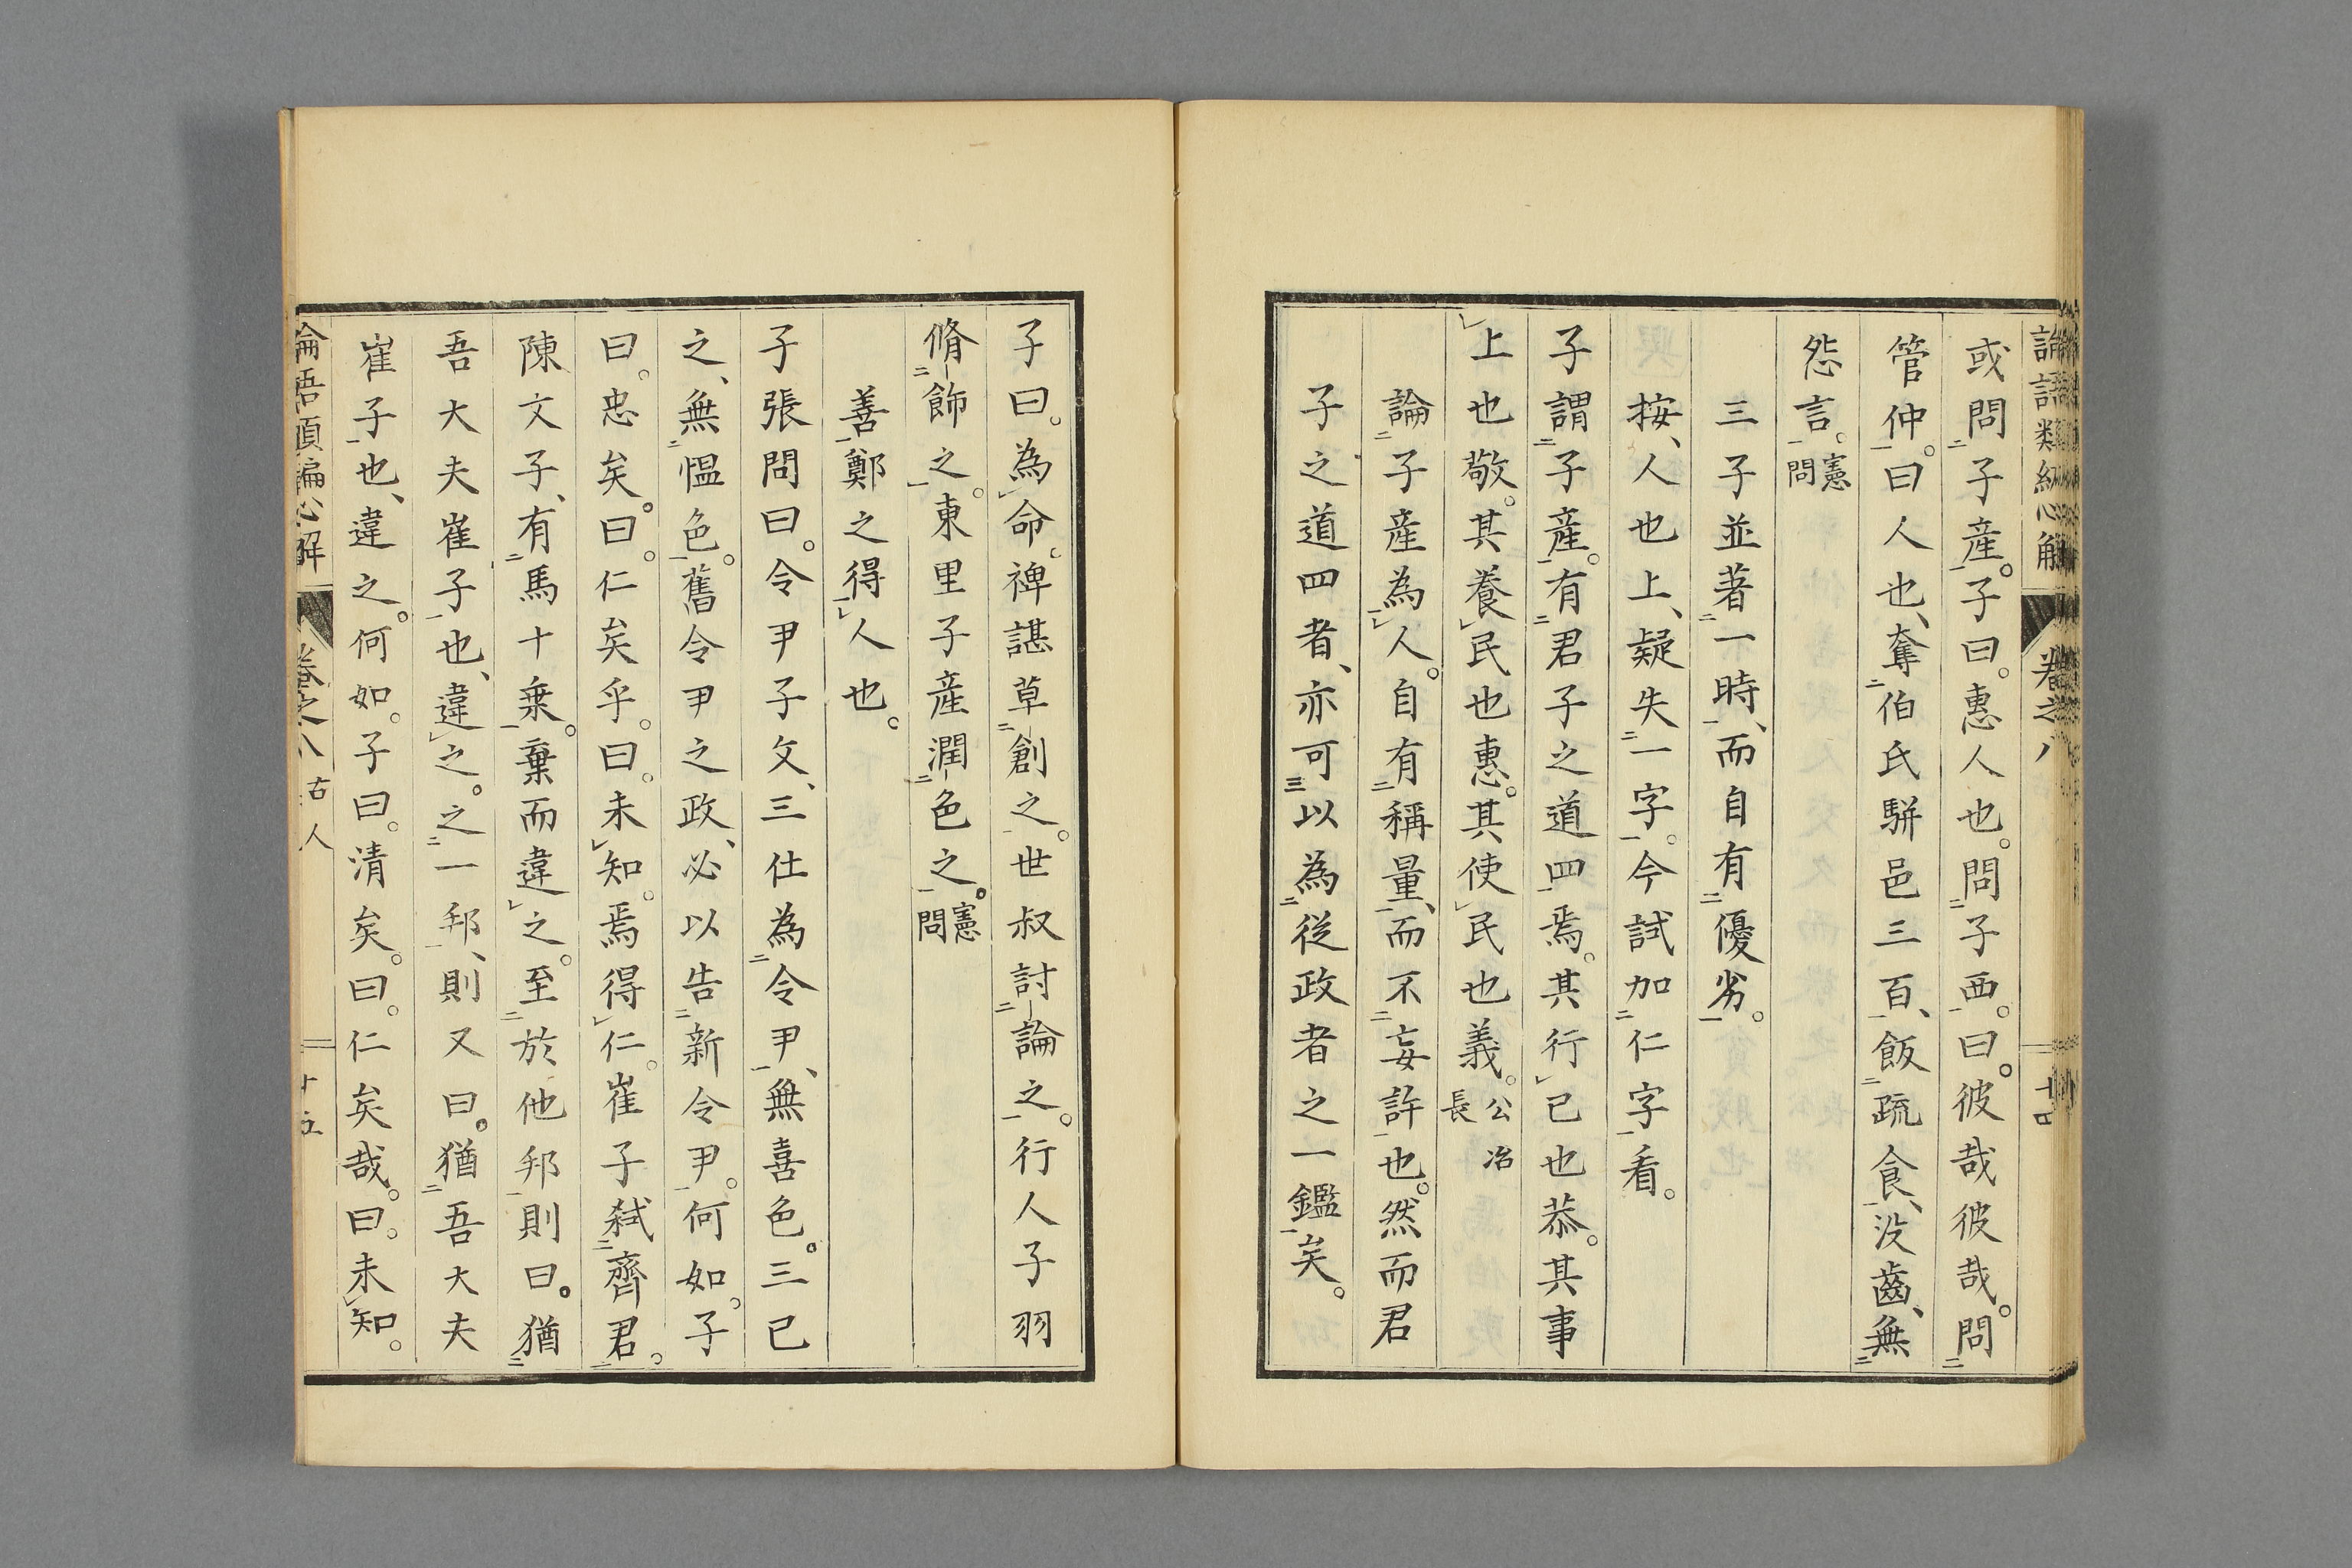 論語類編心解 卷之八 十四
或問子産。子曰。惠人也。問子西。曰。彼哉彼哉。問
管仲。曰人也、奪伯氏駢邑三百、飯疏食、沒齒、無
怨言。憲問
三子並著一時、而自有優劣。
按、人也上、疑失一字。今試加仁字看。
子謂子産。有君子之道四焉。其行己也恭。其事
上也敬。其養民也惠。其使民也義。公冶長
論子産為人。自有稱量、而不妄許也。然而君
子之道四者、亦可以為従政者之一鑑矣。
子曰。為命。裨諶草創之。世叔討論之。行人子羽
脩飾之。東里子産潤色之。憲問
善鄭之得人也。
子張問曰。令尹子文、三仕為令尹、無喜色。三已
之、無慍色。舊令尹之政、必以告新令尹。何如。子
曰。忠矣。曰。仁矣乎。曰。未知。焉得仁。崔子弑齊君。
陳文子、有馬十乗。棄而違之。至於他邦則曰。猶
吾大夫崔子也、違之。之一邦、則又曰。猶吾大夫
崔子也、違之。何如。子曰。清矣。曰。仁矣哉。曰。未知。
論語類編心解 卷之八 古人 十五